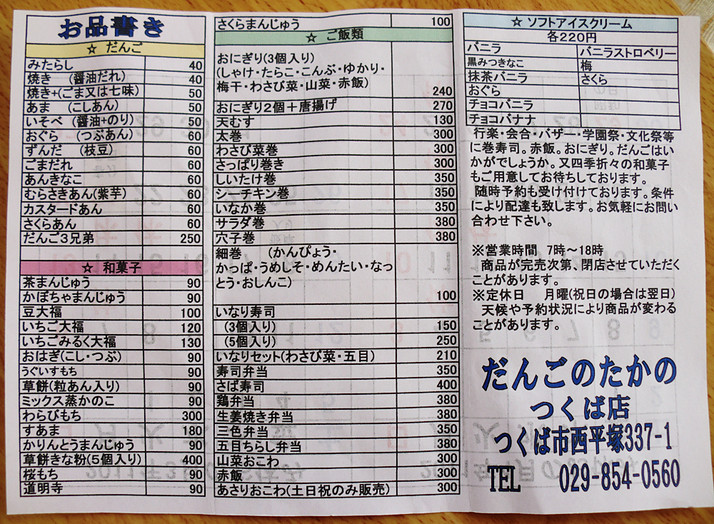 お品書き
☆ だんご
みたらし 40
焼き (醤油だれ) 40
焼き+(ごま又は七味) 50
あま (こしあん) 50
いそべ (醤油+のり) 50
おぐら (つぶあん) 60
ずんだ (枝豆) 60
ごまだれ 60
あんきなこ 60
むらさきあん(紫芋) 60
カスタードあん 60
さくらあん 60
だんご3兄弟 250
☆ 和菓子
茶まんじゅう 90
かぼちゃまんじゅう 90
豆大福 100
いちご大福 120
いちごみるく大福 130
おはぎ(こし・つぶ) 90
うぐいすもち 90
草餅(粒あん入り) 90
ミックス蒸かのこ 90
わらびもち 300
すあま 180
かりんとうまんじゅう 90
草餅きな粉(5個入り) 400
桜もち 90
道明寺 90
さくらまんじゅう 100
☆ ご飯類
おにぎり(3個入り)
(しゃけ・たらこ・こんぶ・ゆかり・
梅干・わさび菜・山菜・赤飯) 240
おにぎり2個+唐揚げ 270
天むす 130
太巻 380
わさび菜巻 380
さっぱり巻き 300
しいたけ巻 350
シーチキン巻 350
いなか巻 350
サラダ巻 380
穴子巻 380
細巻 (かんぴょう・
かっぱ・うめしそ・めんたい・なっ
とう・おしんこ)
100
いなり寿司
(3個入り) 150
(5個入り) 250
いなりセット(わさび菜・五目) 210
寿司弁当 350
さば寿司 400
鶏弁当 380
生姜焼き弁当 380
三色弁当 350
五目ちらし弁当 380
山菜おこわ 300
赤飯 300
あさりおこわ(土日祝のみ販売) 300
☆ ソフトアイスクリーム
各220円
バニラ バニラストロベリー
黒みつきなこ 梅
抹茶バニラ さくら
おぐら
チョコバニラ
チョコバナナ
行楽・会合・バザー・学園祭・文化祭等
に巻寿司。赤飯。おにぎり。だんごはい
かがでしょうか。又四季折々の和菓子
もご用意してお待ちしております。
随時予約も受け付けております。条件
により配達も致します。お気軽にお問い
合わせ下さい。
※営業時間 7時~18時
商品が完売次第、閉店させていただく
ことがあります。
※定休日 月曜(祝日の場合は翌日)
天候や予約状況により商品が変わる
ことがあります。
だんごのたかの
つくば店
つくば市西平塚337-1
TEL 029-854-0560